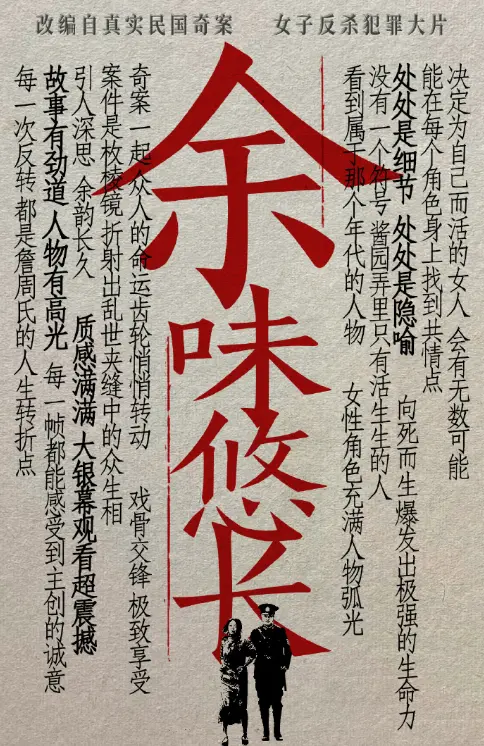 改编自真实民国奇案 女子反杀犯罪大片
决定为自己而活的女人 会有无数可能
能在每个角色身上找到共情点
处处是细节 处处是隐喻 向死而生爆发出极强的生命力
没有一个符号 酱园弄里只有活生生的人
看到属于那个年代的人物 女性角色充满人物弧光
余味悠长
奇案一起众人的命运齿轮悄悄转动 戏骨交锋 极致享受
案件是枚棱镜 折射出乱世夹缝中的众生相
引人深思 余韵长久 质感满满 大银幕观看超震撼
故事有劲道 人物有高光 每一帧都能感受到主创的诚意
每一次反转 都是詹周氏的人生转折点